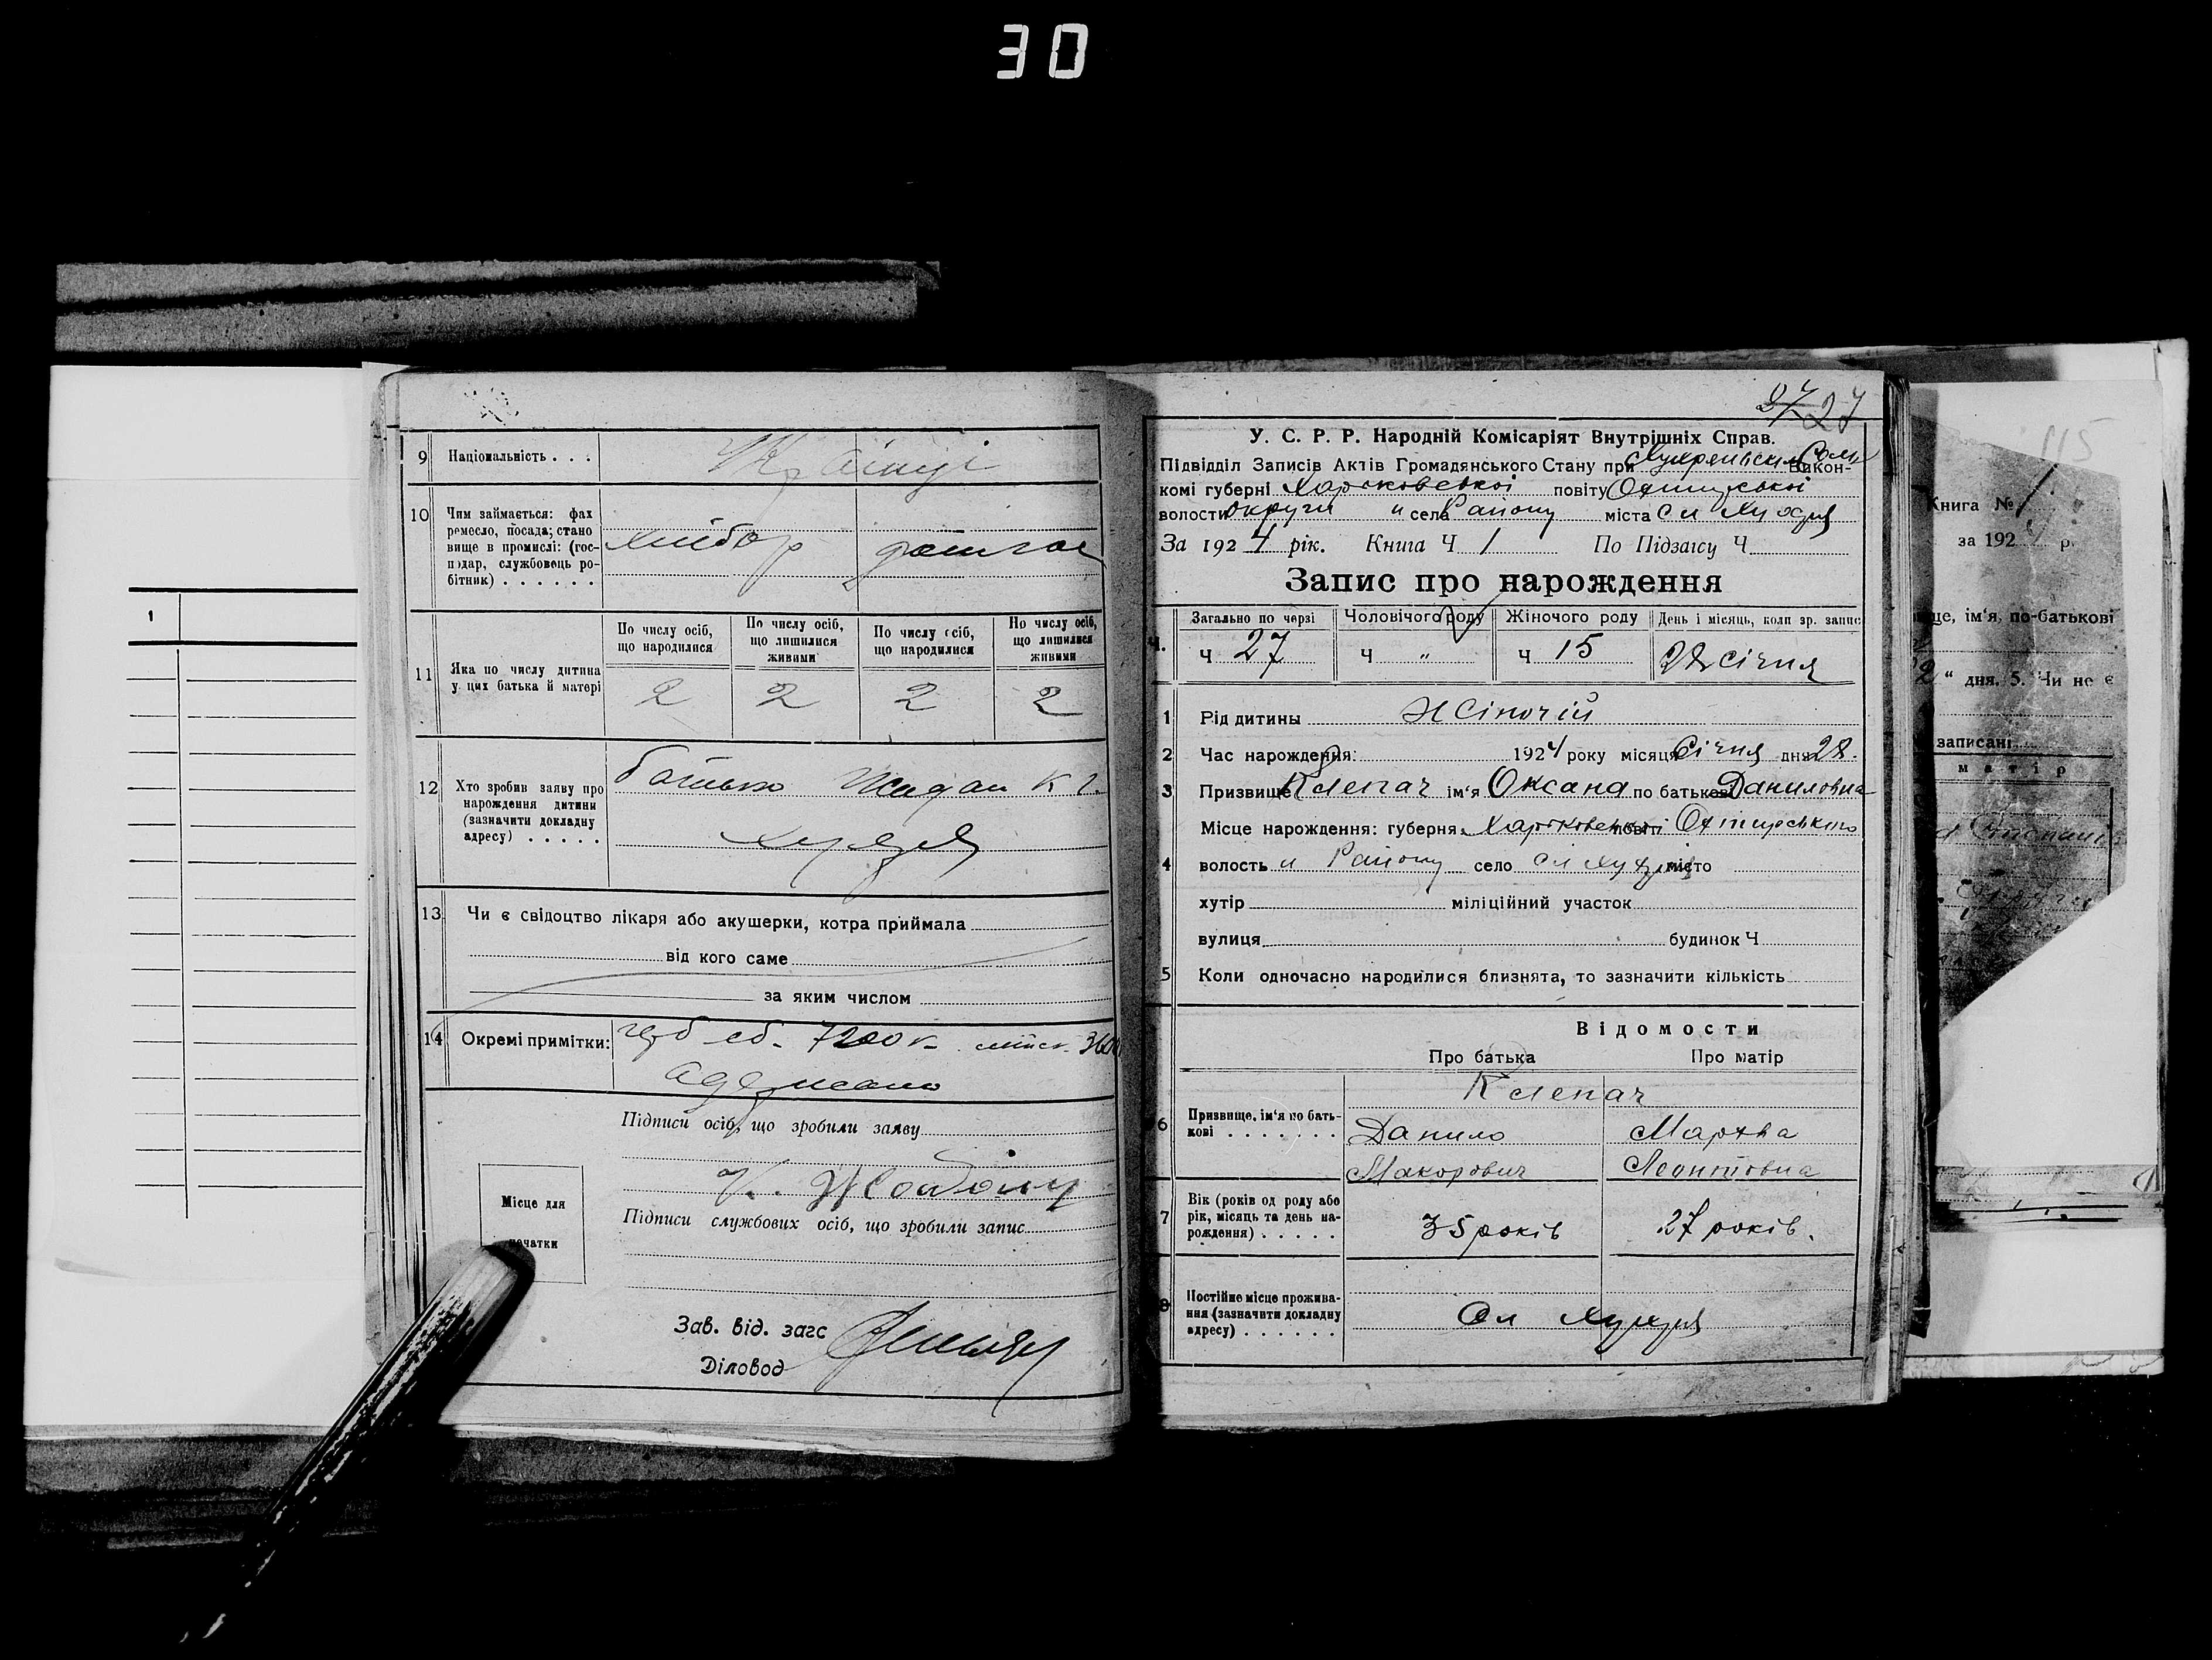 30
9 Національність . . . Українці
10 Чим займається: фах
ремесло, посада; стано
вище в промислі: (гос-
подар, службовець ро-
бітник) . . . . . .
хлібор
11 Яка по числу дитина
у цих батька й матері
По числу осіб,
що народилися
По числу осіб,
що лишилися
живими
По числу осіб,
що народилися
Но числу осіб,
що лишилися
живими
2 2 2 2
12 Хто зробив заяву про
нарождення дитини
(зазначити докладну
адресу) . . . . .
батько Жадан К Г.
Хухря
13 Чи є свідоцтво лікаря або акушерки, котра приймала
від кого саме
за яким числом
14 Окремі примітки: 7200 к
одержано
Підписи осіб, що зробили заяву
Підписи службових осіб, що зробили запис
Місце для
печатки
Зав. від. загс
Діловод
27 27
У. С. Р. Р. Народній Комісаріят Внутрішніх Справ.
Підвідділ Записів Актів Громадянського Стану при Викон-
комі губерні Харьковської повіту Охтирської
волости округи села Району міста сл Хухря
За 1924 рік. Книга Ч 1 По Підзагсу Ч
Запис про нарождення
Ч. Загально по черзі Чоловічого роду Жіночого роду День і місяць, коли зр. запис
Ч 27 Ч " Ч 15 28 січня
1 Рід дитини Жіночій
2 Час нарождення: 1924 року місяця Січня дня 28.
3 Призвище Клепач ім'я Оксана по батькові Даниловна
Місце нарождення: губерня Харьковської повіт Охтирського
4 волость и Району село сл Хухря місто
хутір міліційний участок
вулиця будинок Ч
5 Коли одночасно народилися близнята, то зазначити кількість
Відомости
Про батька Про матір
Клепач
6 Призвище, ім'я по бать-
кові . . . . . . .
Данило Мархва
Макорович Леонтовна
7 Вік (років од роду або
рік, місяць та день на-
рождення) . . . . .
35 років 27 років.
8 Постійне місце прожива-
ння (зазначити докладну
адресу) . . . . . .
Сл Хухря
1
115
Книга № 1
за 1924 р.
ще, ім'я, по-батькові
2 " дня. 5. Чи не є
записані
матір